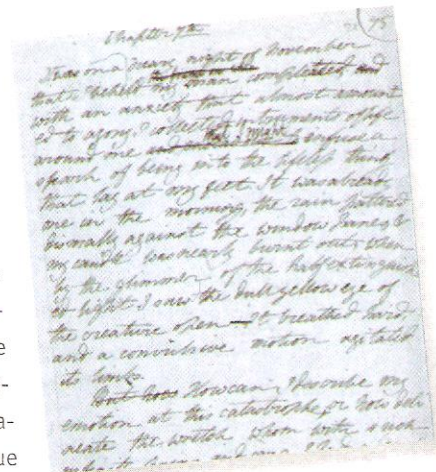 Chapter 7th
95
It was on a dreary night of November
that I beheld my man compleated, and
with an anxiety that almost amount
ed to agony, I collected instruments of life
around me and that I might infuse a
spark of being into the lifeless thing
that lay at my feet. It was already
one in the morning, the rain pattered
dismally against the window panes, &
my candle was nearly burnt out, when
by the glimmer of the half extinguish
ed light I saw the dull yellow eye of
the creature open — It breathed hard
and a convulsive motion agitated
its limbs.
But how How can I describe my
emotion at this catastrophe; or how deli
neate the wretch whom with such
-
e
-
a-
ue